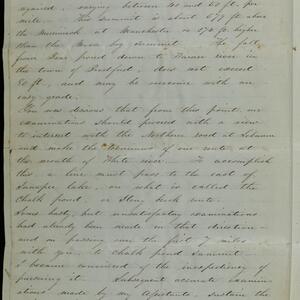 required, varying between 40 and 60 ft. per
mile. This Summit is about 679 ft. above
the Merrimack at Manchester is 170 ft. higher
than the summit. The fall
from pond down to Warner river in
the town of Bradford, does not exceed
80 ft., and may be overcome with an
easy grade,
You was desirous that from this point an
examination should proceed with a view
to intersect with the Northern road at Lebanon
and make the terminus of our route at
the mouth of White river. To accomplish
this, a line must pass to the east of
Sunapee lake, on what is called the
Chalk pond, or Stony brook route.
Some hasty, but unsatisfactory examinations
had already been made in that direction
and on passing over the first 7 miles
with you, to Chalk pond Summit
I became convinced of the inexpediency of
pursuing it. Subsequent accurate examina-
tions, made by my assistants, sustain the